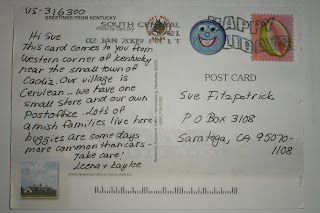 US-316300
GREETINGS FROM KENTUCKY
Photo by Dan Dry
SOUTH CENTRAL
02 JAN 2009 PM
Hi Sue
This card comes to you from
western corner of kentucky
near the small town of
Cadiz. Our village is
Cerulean - we have one
small store and our own
Postoffice. Lots of
amish families live here
buggies are some days
more common than cars -
Take care!
Leena + Kaylee
POST CARD
Sue Fitzpatrick
P O Box 3108
Saratoga, CA 95070-
1108